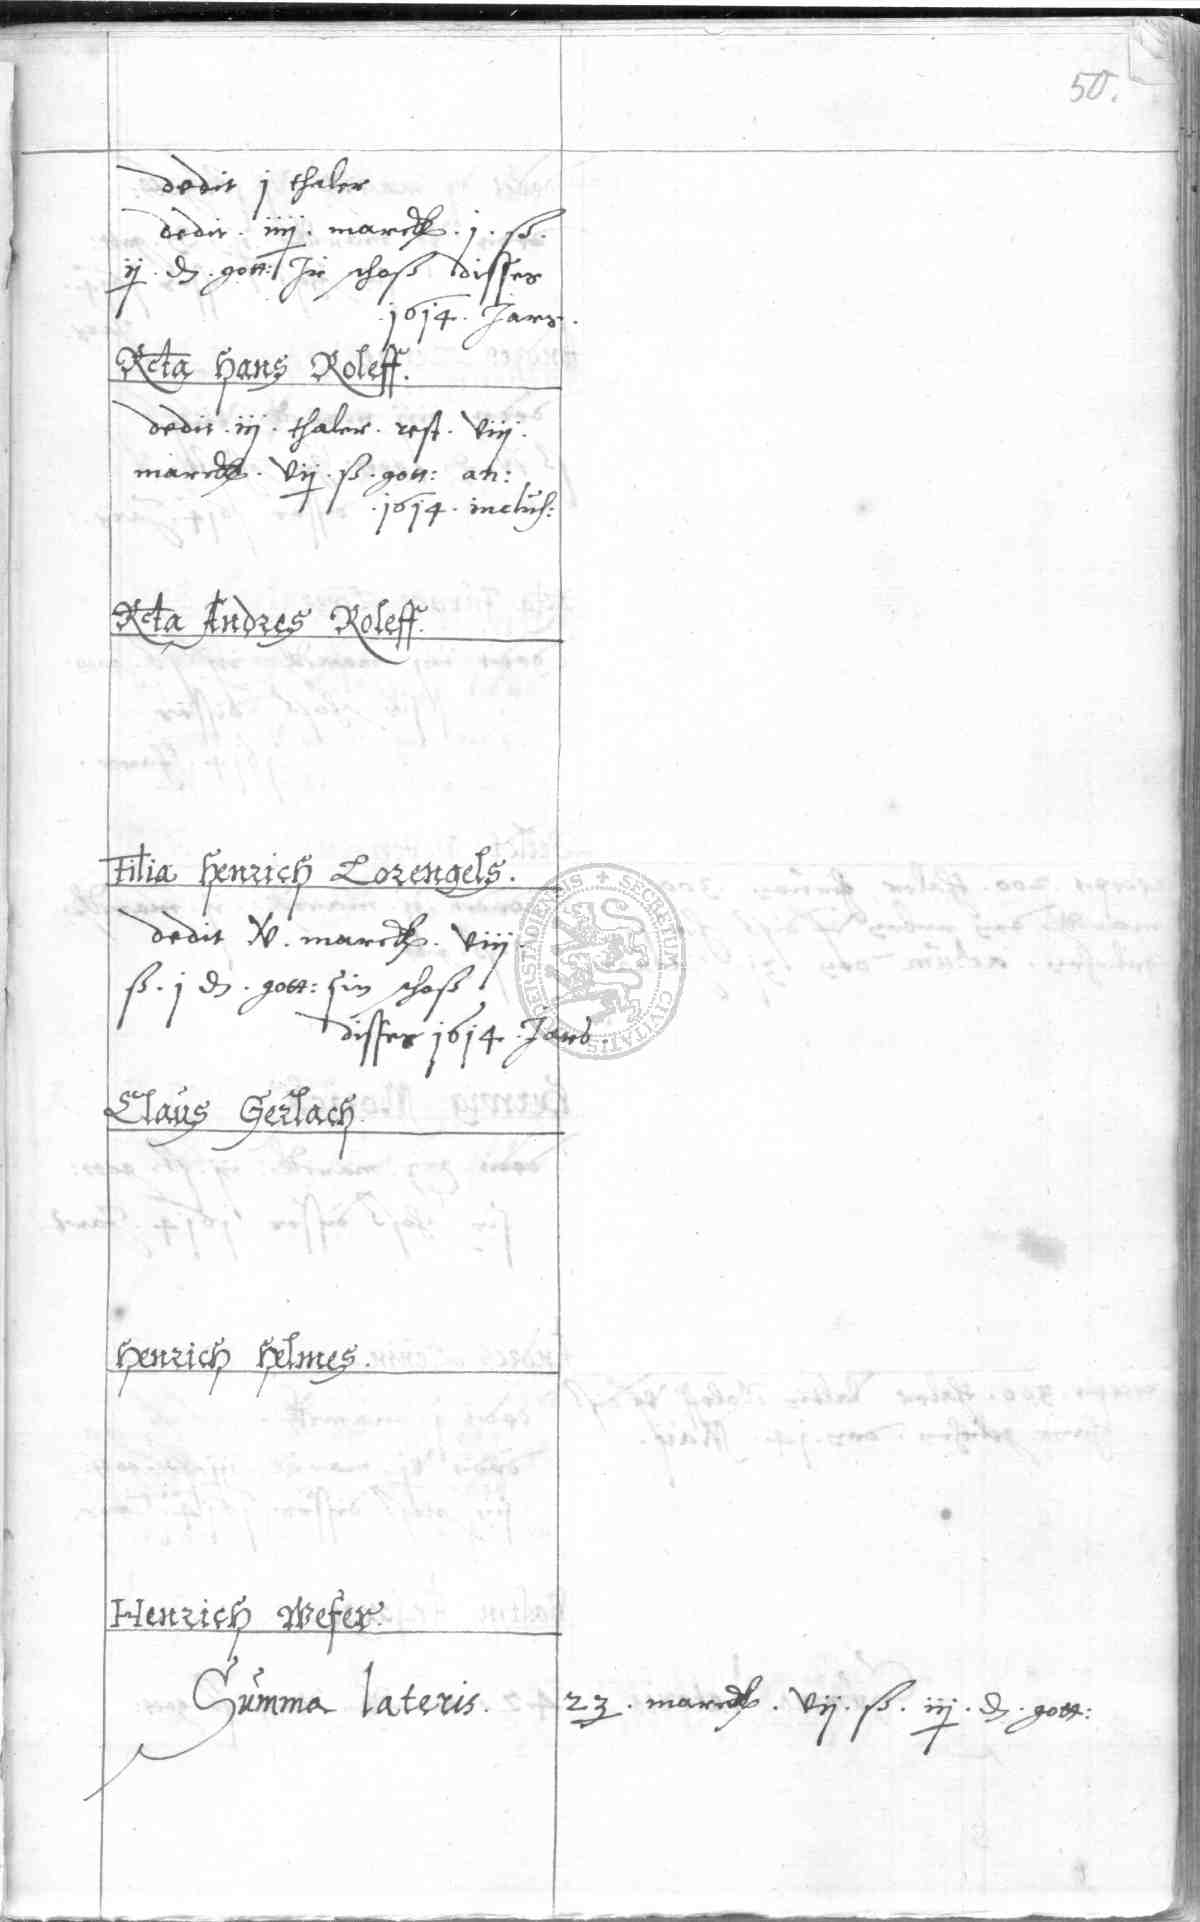 50.
dedit j thaler
dedit. iiij. marck. j. ß.
ij. d. gott: In schoß disser
.1614. Jars.
Rcta Hans Roleff.
dedit. iij. thaler. rest. viij.
marck. vij. ß. gott: an:
.1614. inclus:
Rcta Andres Roleff.
Filia Henrich Lorengels.
dedit xv. marck. viij.
ß. j d. gott: Jin schoß
disser 1614. Jars.
Claus Gerlach.
Henrich Helmes.
Henrich Wefer.
Summa lateris. 23. marck. vij. ß. iij. d. gott:
SECRETUM CIVITATIS